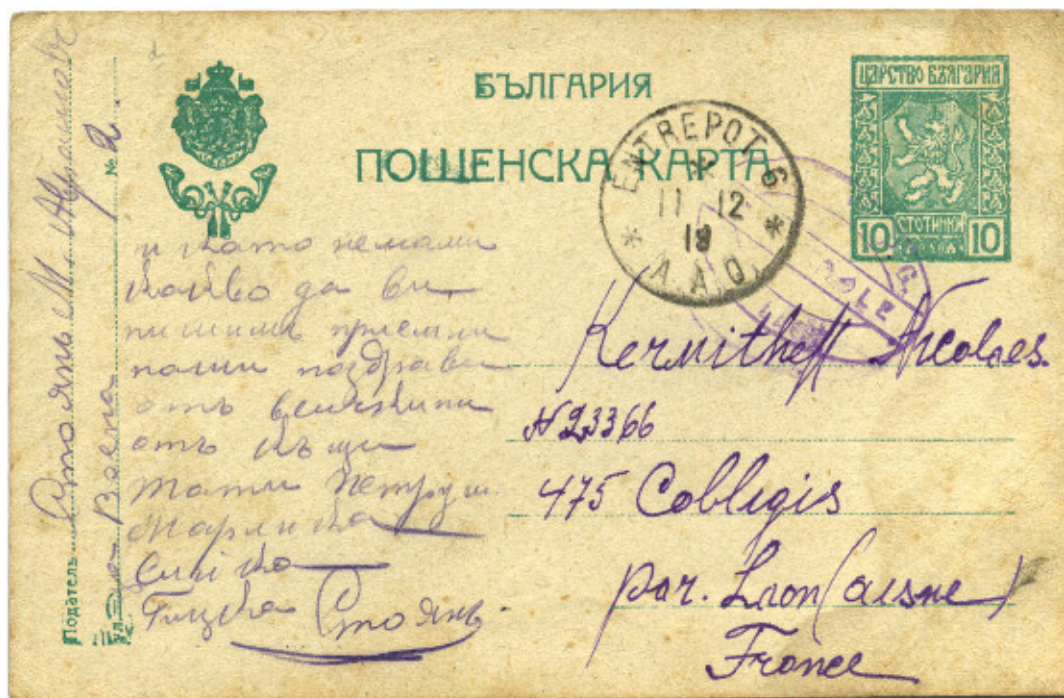 БЪЛГАРИЯ
ПОЩЕНСКА КАРТА
ЦАРСТВО БЪЛГАРИЯ
СТОТИНКИ
10 10
ENTREPOT 6
11 12
19
* A.A.O. *
Податель
Стоянъ М.
№ 2
и като немами
какво да ви
пишимъ приемни
наши поздрави
отъ всички ни
отъ къщи
Тати Петруш
Марийка
Стоянъ
Kermitheff Nicolaes.
N 23366
475 Collegis
par. Laon (aisne)
France